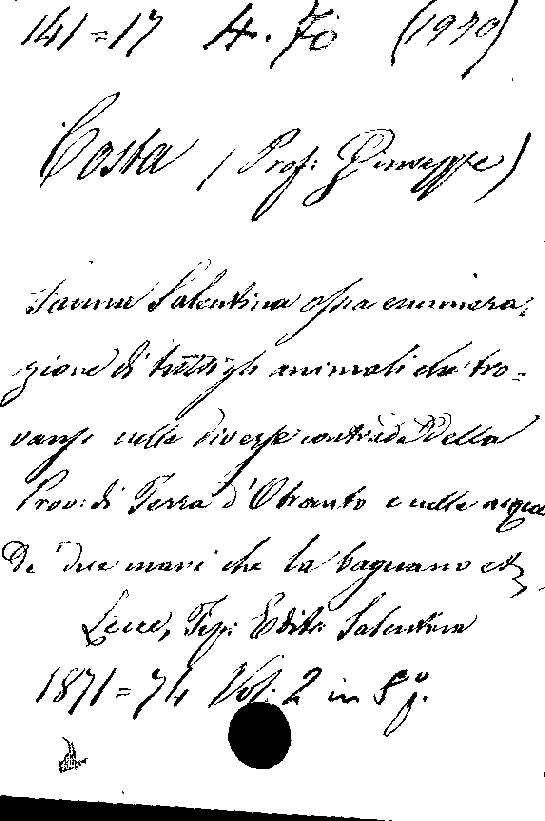 141=17 4. Fo (1990)
Costa (Prof: Giuseppe)
Fauna Salentina ossia enumera-
zione di tutti gli animali che tro-
vansi nelle diverse contrade della
Prov: di Terra d'Otranto e nelle acque
de' due mari che la bagnano
Lecce, Tip: Edit: Salentina
1871=74 Vol: 2 in 8º.